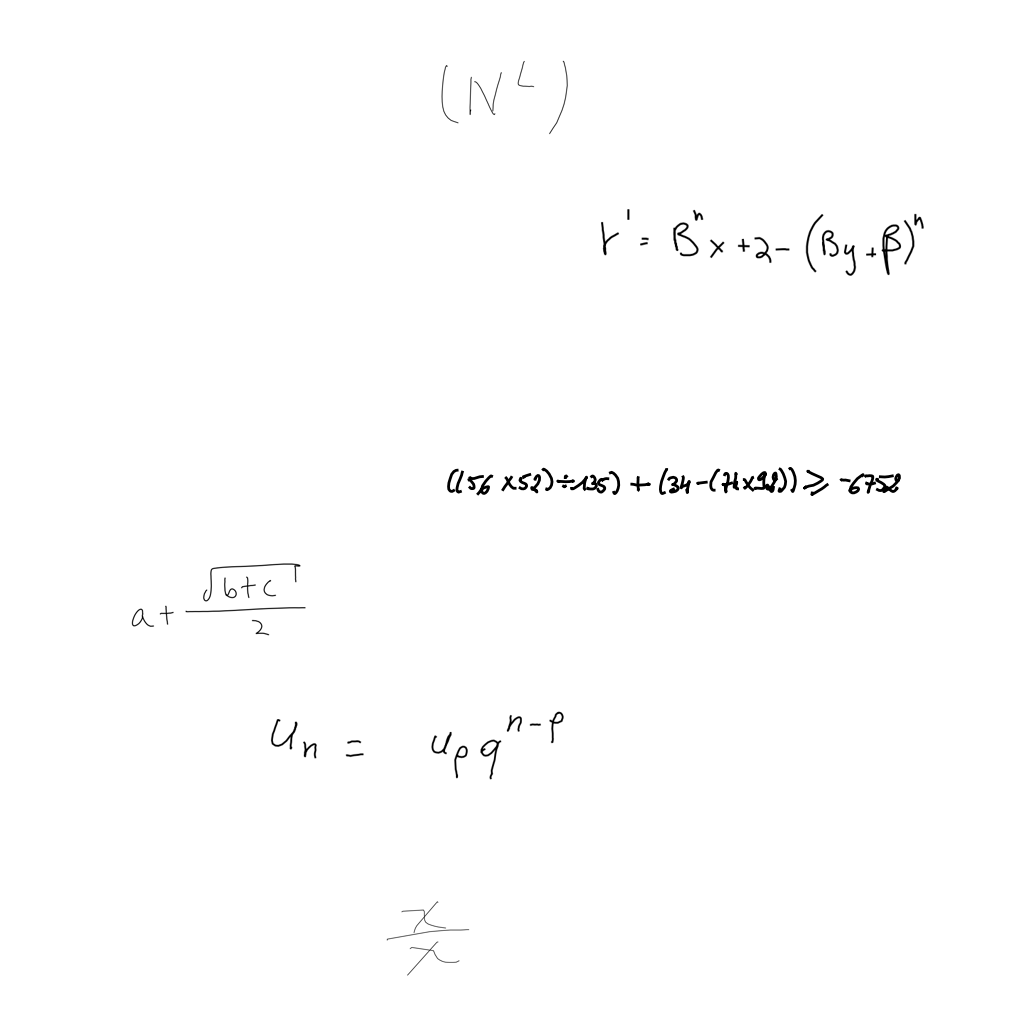 (N^L)
r' = B^n x + 2 - (By + β)^n
((56 × 52) ÷ 135) + (34 - (71 × 98)) ≥ -6758
a + \frac{\sqrt{b+c}}{2}
u_n = u_p q^{n-p}
\frac{x}{x}